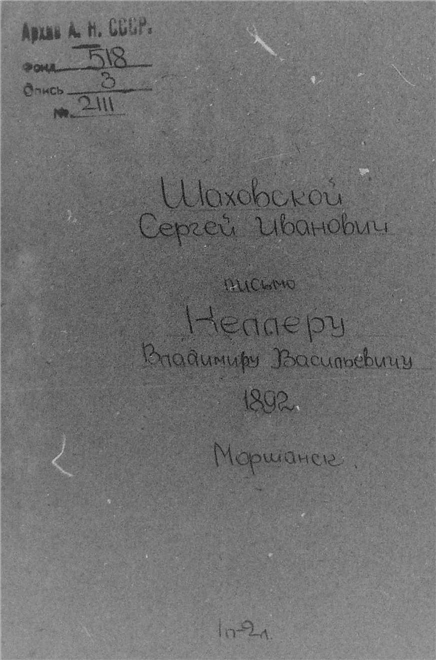 Архив А. Н. СССР.
Фонд 518
Опись 3
№ 2111
Шаховской
Сергей Иванович
письмо
Келлеру
Владимиру Васильевичу
1892.
Моршанск.
1п-2л.